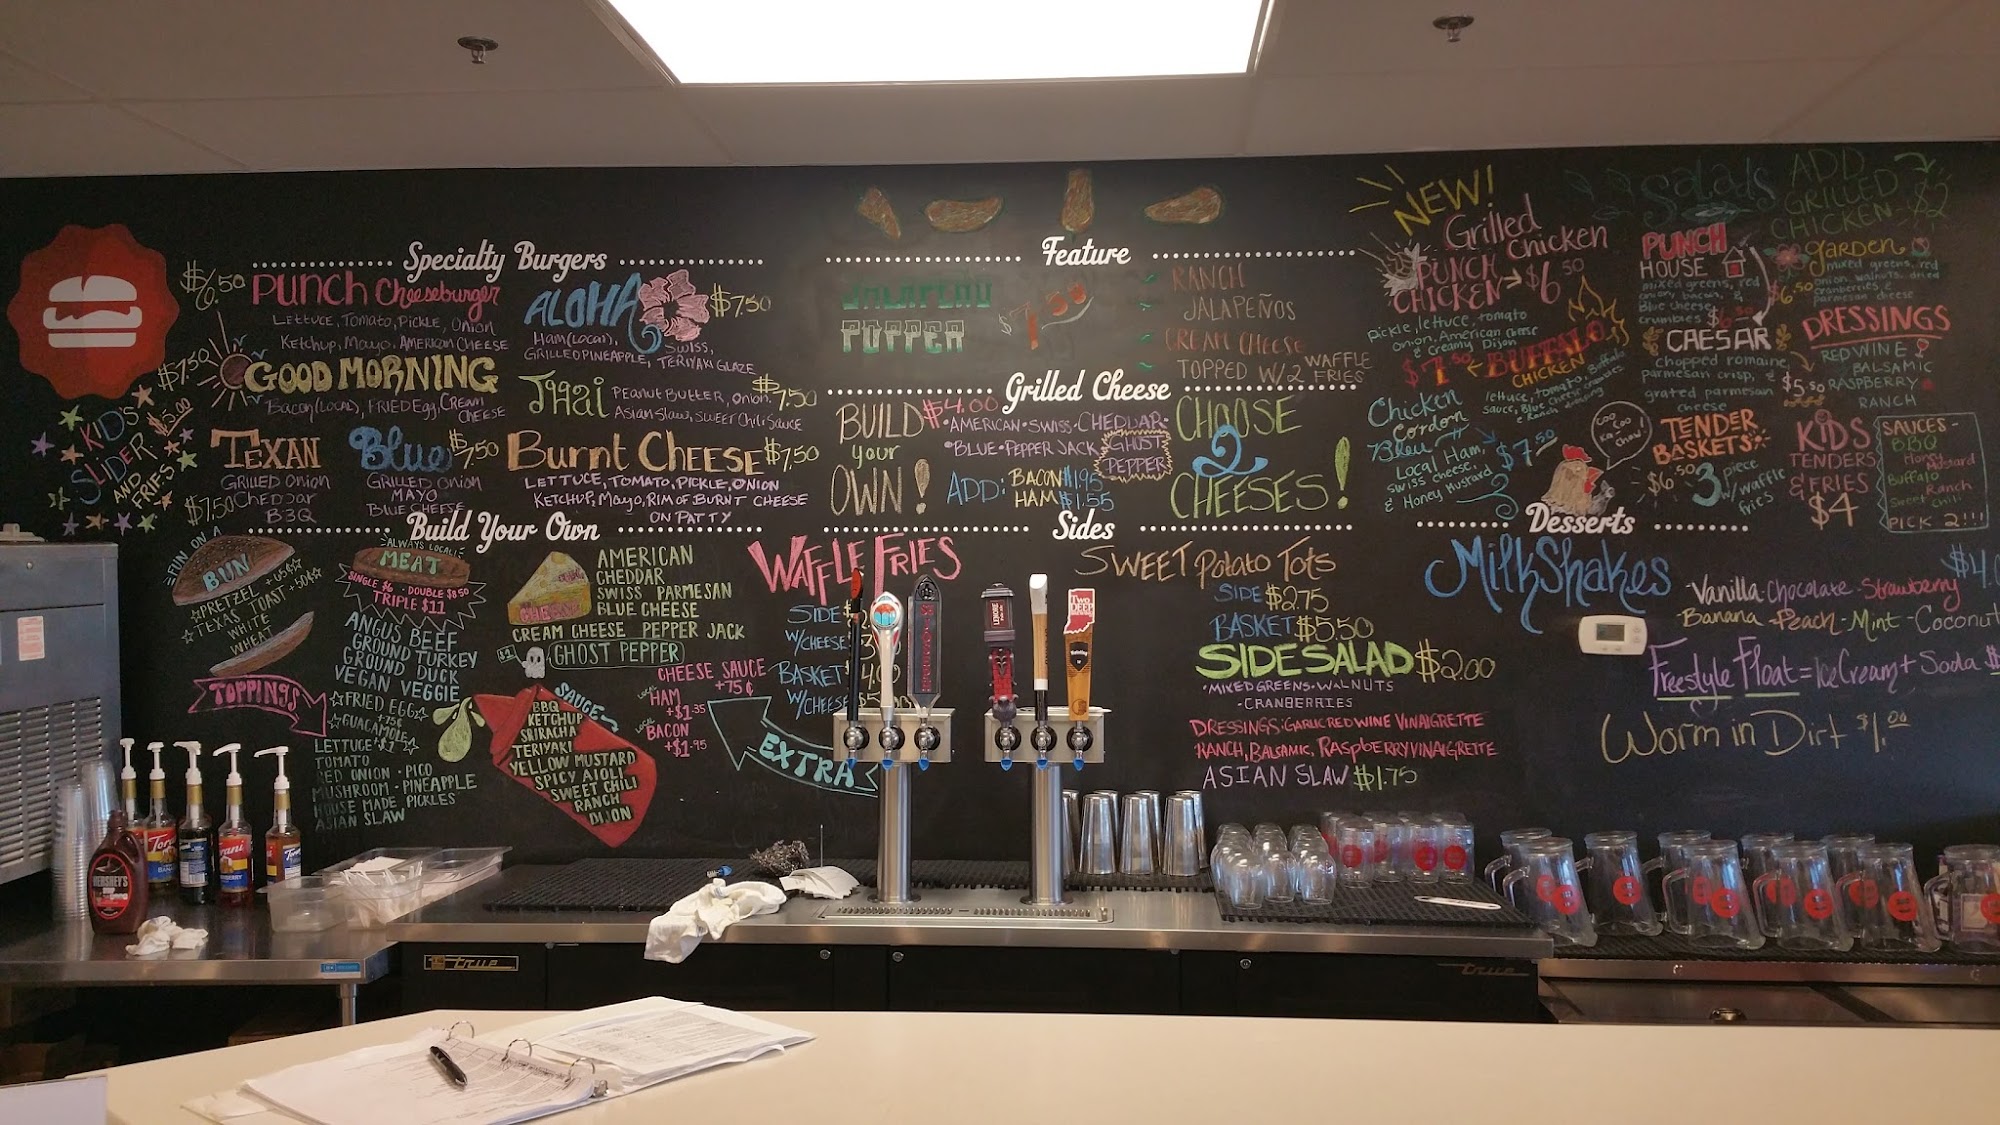 Specialty Burgers
$6.50 PUNCH Cheeseburger
LETTUCE, TOMATO, PICKLE, ONION
KETCHUP, MAYO, AMERICAN CHEESE
ALOHA $7.50
HAM (LOCAL), SWISS,
GRILLED PINEAPPLE, TERIYAKI GLAZE
$7.50 GOOD MORNING
BACON (LOCAL), FRIED EGG, CREAM
CHEESE
THAI PEANUT BUTTER, ONION, $7.50
ASIAN SLAW, SWEET CHILI SAUCE
KID'S $5.00
SLIDER
AND
FRIES
TEXAN
GRILLED ONION
$7.50 CHEDDAR
BBQ
Blue $7.50
GRILLED ONION
MAYO
BLUE CHEESE
Burnt CHEESE $7.50
LETTUCE, TOMATO, PICKLE, ONION
KETCHUP, MAYO, RIM OF BURNT CHEESE
ON PATTY
Build Your Own
FUN ON A
BUN
PRETZEL +65¢
TEXAS TOAST +50¢
WHITE
WHEAT
ALWAYS LOCAL!
MEAT
SINGLE $6 · DOUBLE $8.50
TRIPLE $11
ANGUS BEEF
GROUND TURKEY
GROUND DUCK
VEGAN VEGGIE
TOPPINGS
FRIED EGG
+75¢
GUACAMOLE
LETTUCE +$1
TOMATO
RED ONION · PICO
MUSHROOM · PINEAPPLE
HOUSE MADE PICKLES
ASIAN SLAW
CHEESE
AMERICAN
CHEDDAR
SWISS PARMESAN
BLUE CHEESE
CREAM CHEESE PEPPER JACK
GHOST PEPPER
SAUCE
BBQ
KETCHUP
SRIRACHA
TERIYAKI
YELLOW MUSTARD
SPICY AIOLI
SWEET CHILI
RANCH
DIJON
CHEESE SAUCE
+75¢
LOCAL
HAM
+$1.35
LOCAL
BACON
+$1.95
EXTRA
Feature
JALAPEÑO
POPPER
$7.50
RANCH
JALAPEÑOS
CREAM CHEESE
TOPPED W/2 WAFFLE
FRIES
Grilled Cheese
BUILD $4.00
your
OWN!
·AMERICAN·SWISS·CHEDDAR·
·BLUE·PEPPER JACK
GHOST
PEPPER
ADD: BACON $1.95
HAM $1.55
CHOOSE
2
CHEESES!
Sides
WAFFLE FRIES
SIDE
W/CHEESE
BASKET
W/CHEESE
SWEET Potato Tots
SIDE $2.75
BASKET $5.50
SIDE SALAD $2.00
·MIXED GREENS·WALNUTS
·CRANBERRIES
DRESSINGS: GARLIC RED WINE VINAIGRETTE
RANCH, BALSAMIC, RASPBERRY VINAIGRETTE
ASIAN SLAW $1.75
NEW!
Grilled
Chicken
PUNCH
CHICKEN → $6.50
pickle, lettuce, tomato
onion, American cheese
& Creamy Dijon
$7.50 BUFFALO
CHICKEN
lettuce, tomato, Buffalo
sauce, Blue cheese crumbles
& Ranch dressing
Chicken
Cordon
Bleu $7.50
Local Ham,
swiss cheese,
& Honey Mustard
Salads
ADD
GRILLED
CHICKEN - $2
PUNCH
HOUSE
mixed greens, red
onion, bacon, &
Blue cheese
crumbles $6.50
Garden
mixed greens, red
onion, walnuts, dried
cranberries, &
parmesan cheese
$6.50
CAESAR
chopped romaine,
parmesan crisp, &
grated parmesan
cheese
$5.50
DRESSINGS
RED WINE
BALSAMIC
RASPBERRY
RANCH
TENDER
BASKETS
$6.50 3 piece
w/ waffle
fries
KIDS
TENDERS
& FRIES
$4
SAUCES-
BBQ
Honey Mustard
Buffalo
Ranch
Sweet chili
PICK 2!!!
Desserts
MilkShakes $4.0
·Vanilla·Chocolate·Strawberry
·Banana·Peach·Mint·Coconut
Freestyle Float = Ice Cream + Soda $
Worm in Dirt $1.00
TWO
DEEP
HERSHEY'S
Torani
true
true